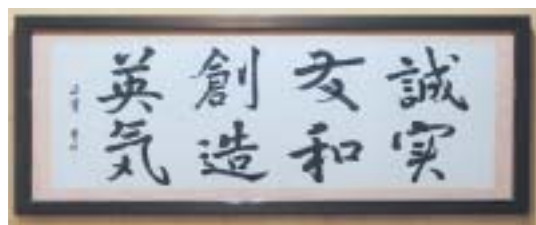 誠実
友和
創造
英気